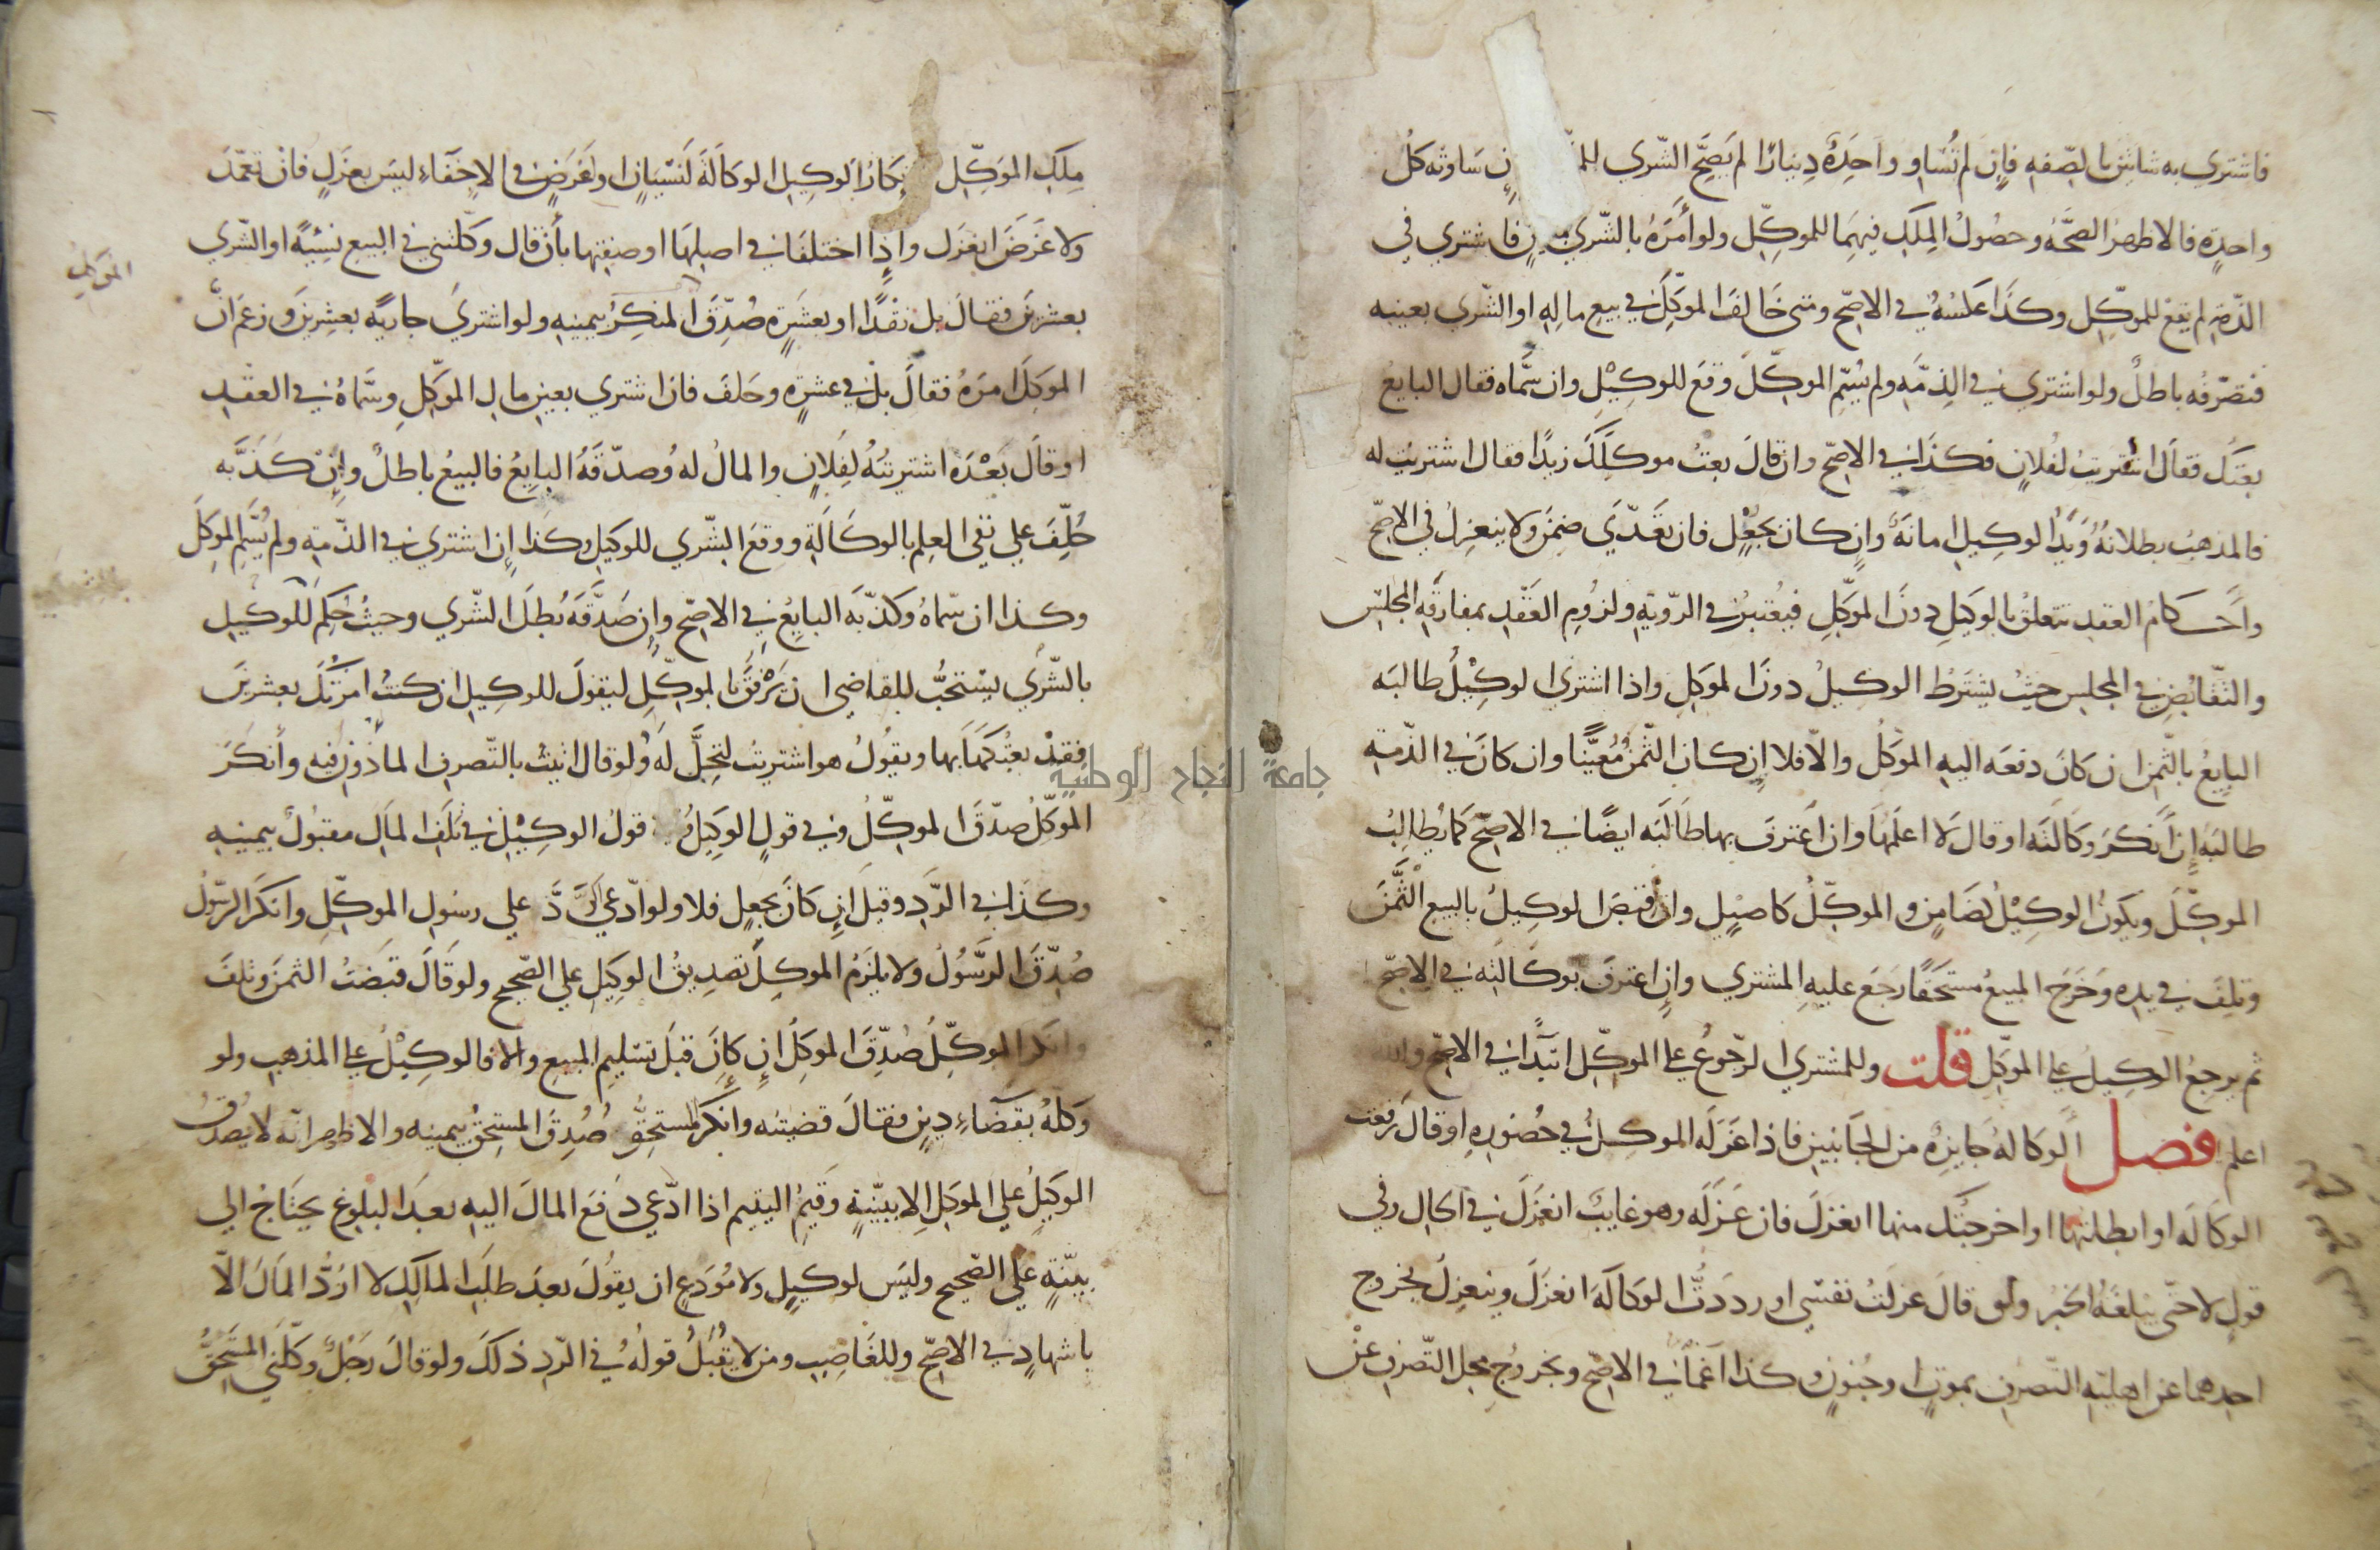 فاشتري به شاتين بالصفه فإن لم تساو واحدة دينارًا لم يصح الشري للم ن ساوته كل
واحدة فالاظهر الصحة وحصول الملك فيهما للموكل ولو أمره بالشري بمعين فاشتري في
الذمة لم يقع للموكل وكذا عكسه في الاصح ومتى خالف الموكل في بيع ماله او الشري بعينه
فتصرفه باطل ولو اشتري في الذمة ولم يسم الموكل وقع للوكيل وان سماه فقال البايع
بعتك فقال اشتريت لفلان فكذا في الاصح وان قال بعت موكلك زيدًا فقال اشتريت له
فالمذهب بطلانه ويد الوكيل امانة وإن كان بجعل فان تعدي ضمن ولا ينعزل في الاصح
وأحكام العقد تتعلق بالوكيل دون الموكل فيعتبر في الروية ولزوم العقد بمفارقة المجلس
والتقابض في المجلس حيث يشترط الوكيل دون الموكل واذا اشتري الوكيل طالبه
البايع بالثمن ان كان دفعه اليه الموكل والا فلا إن كان الثمن معينًا وان كان في الذمة
طالبه إن أنكر وكالته او قال لا اعلمها وان أعترف بها طالبه ايضًا في الاصح كما يطالب
الموكل ويكون الوكيل كضامن والموكل كاصيل واذا قبض الوكيل بالبيع الثمن
وتلف في يده وخرج المبيع مستحقًا رجع عليه المشتري وإن اعترف بوكالته في الاصح
ثم يرجع الوكيل علي الموكل قلت وللمشتري الرجوع علي الموكل ابتدآ في الاصح والله
اعلم فصل الوكالة جايزة من الجانبين فاذا عزله الموكل في حضوره او قال رفعت
الوكالة او ابطلتها او اخرجتك منها انعزل فان عزله وهو غايب انعزل في الحال وفي
قول لا حتى يبلغه الخبر ولو قال عزلت نفسي او رددت الوكالة انعزل وينعزل بخروج
احدهما عن اهلية التصرف بموت او جنون وكذا اغمآ في الاصح وبخروج محل التصرف عن
ملك الموكل كار الوكيل الوكالة لنسيان او لغرض في الاخفاء ليس بعزل فان تعمد
ولا غرض انعزل وإذا اختلفا في اصلها او صفتها بأن قال وكلتني في البيع نسيئة او الشري
بعشرين فقال بل نقدًا او بعشرة صدق المنكر بيمينه ولو اشتري جارية بعشرين وزعم ان
الموكل
الموكل امره فقال بل في عشرة وحلف فان اشتري بعين مال الموكل وسماه في العقد
او قال بعده اشتريته لفلان والمال له وصدقه البايع فالبيع باطل وإن كذبه
حلف علي نفي العلم بالوكالة ووقع الشري للوكيل وكذا إن اشتري في الذمة ولم يسم الموكل
وكذا ان سماه وكذبه البايع في الاصح وإن صدقه بطل الشري وحيث حكم للوكيل
بالشري يستحب للقاضي ان يرفق بالموكل ليقول للوكيل ان كنت امرتك بعشرين
فقد بعتكها بها ويقول هو اشتريت لتحل له ولو قال اتيت بالتصرف المأذون فيه وأنكر
الموكل صدق الموكل وفي قول الوكيل قول الوكيل في تلف المال مقبول بيمينه
وكذا في الرد وقيل إن كان بجعل فلا ولو ادعي الرد علي رسول الموكل وانكر الرسول
صدق الرسول ولا يلزم الموكل تصديق الوكيل علي الصحيح ولو قال قبضت الثمن وتلف
وانكر الموكل صدق الموكل ان كان قبل تسليم المبيع والا فالوكيل علي المذهب ولو
وكله بقضاء دين فقال قضيته وانكر المستحق صدق المستحق بيمينه والاظهر انه لا يصدق
الوكيل علي الموكل الا ببينة وقيم اليتيم اذا ادعي دفع المال اليه بعد البلوغ يحتاج الي
بينة علي الصحيح وليس لوكيل ولا مودع ان يقول بعد طلب المالك لا ارد المال الا
باشهاد في الاصح وللغاصب ومن لا يقبل قوله في الرد ذلك ولو قال رجل وكلني المستحق
جامعة النجاح الوطنية